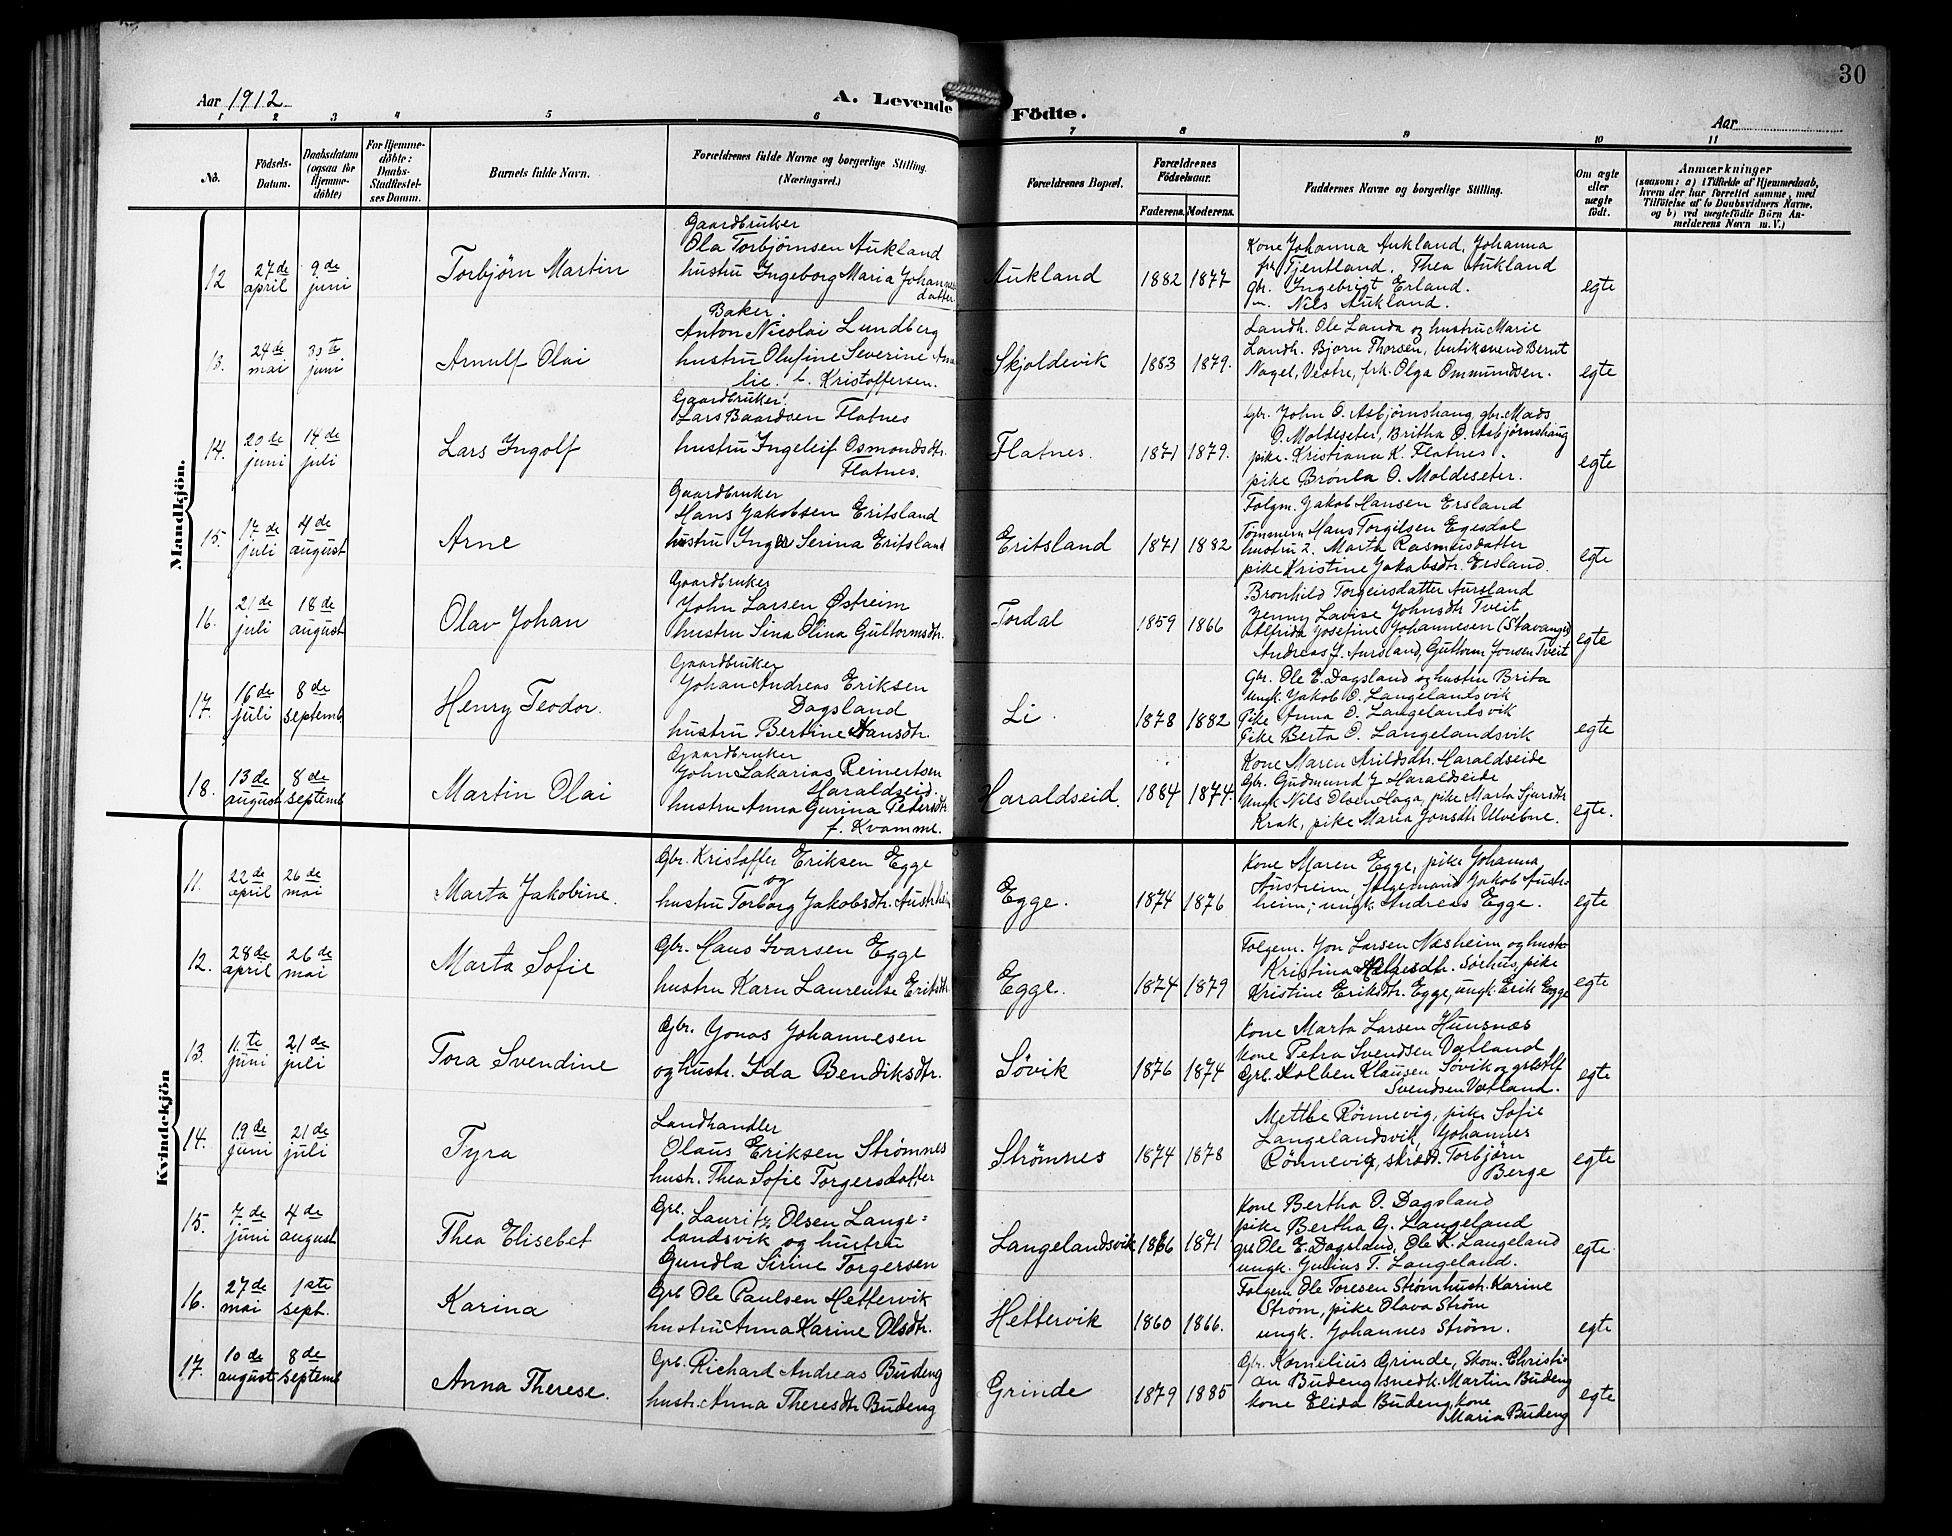 Aar 1912
A. Levende Födte.
30
Aar
1 2 3 4 5 6 7 8 9 10 11
No.
Födsels-Datum.
Daabsdatum (ogsaa for Hjemme-döbte)
For Hjemme-döbte: Daabs-Stadfæstel-ses Datum.
Barnets fulde Navn.
Forældrenes fulde Navne og borgerlige Stilling. (Næringsvei.)
Forældrenes Bopæl.
Forældrenes Födselsaar.
Faderens. Moderens.
Faddernes Navne og borgerlige Stilling.
Om ægte eller uægte födt.
Anmærkninger
(saasom: a) i Tilfælde af Hjemmedaab,
hvem der har forrettet samme, med
Tilföielse af to Daabsvidners Navne.
og b) ved uægtefödte Börn An-
melderens Navn m.V.)
Mandkjön.
12 27de april 9de juni
Torbjørn Martin
Gaardbruker
Ola Torbjørnsen Aukland
hustru Ingeborg Maria Johannes
datter
Aukland 1882 1877
Kone Johanna Aukland, Johanna
frk Tjentland. Thea Aukland
gbr. Ingebrigt Erland.
Nils Aukland.
egte
13. 24de mai 30te juni
Arnulf Olai
Baker.
Anton Nicolai Lundberg
hustru Olufine Severine Ama
lie. f. Kristoffersen.
Skjoldevik 1883 1879.
Landh. Ole Landa og hustru Marie
Landh. Bjørn Thorsen, butiksvend Bernt
Nagel, Vestre, frk. Olga Ommundsen.
egte
14. 20de juni 14de juli
Lars Ingolf
Gaardbruker.
Lars Baardsen Flatnes
hustru Ingeleif Osmondsdtr.
Flatnes.
Flatnes. 1871 1879.
Gbr. John O. Asbjørnshaug, gbr. Mads
O. Moldeseter, Britha O. Asbjørnshaug
pike. Kristiana K. Flatnes.
pike Brønla O. Moldeseter.
egte
15. 17de juli 4de august
Arne
Gaardbruker
Hans Jakobsen Eritsland
hustru Inger Serina Eritsland
Eritsland 1871 1882
Folgm. Jakob Hansen Ersland
Tømmerm Hans Torgilsen Egesdal
hustru 2. Marta Rasmusdatter
pike Kristine Jakobsdtr. Ersland.
egte
16. 21de juli 18de august
Olav Johan
Gaardbruker
John Larsen Østreim
hustru Sina Olina Guttormsdtr.
Tordal 1859 1866
Bronhild Torgeirsdatter Aursland
Jenny Lavise Johnsdtr Tveit
Alfrida Josefine Johannesen (Stavanger)
Andreas J. Aursland, Guttorm Jonsen Tveit
egte
17. 16de juli 8de septemb
Henry Teodor.
Gaardbruker
Johan Andreas Eriksen
Dagsland
hustru Bertine Hansdtr.
Li. 1878 1882
Gbr. Ole E. Dagsland og hustru Brita
ungk. Jakob O. Langelandsvik
Pike Anna O. Langelandsvik
Pike Berta O. Langelandsvik
egte
18. 13de august 8de septemb
Martin Olai
Gaardbruker
John Sakarias Reinertsen
Haraldseid.
hustru Anna Gurina Pedersdtr
f. Kvamme.
Haraldseid. 1884 1874.
Kone Maren Arildsdtr. Haraldseide
Gbr. Gudmund J. Haraldseide
Ungk Nils Olsen Haga, pike Marta Sjursdtr
Krak, pike Maria Jonsdtr Ulvebne.
egte.
Kvindekjön
11. 22de april 26de mai
Marta Jakobine.
Gbr. Kristoffer Eriksen Egge
og
hustru Torborg Jakobsdtr. Austrheim
Egge. 1874 1876
Kone Maren Egge, pike Johanna
Austreim, folgemand Jakob Austr-
heim; ungk. Andreas Egge.
egte
12. 28de april 26de mai
Marta Sofie
Gbr. Hans Ivarsen Egge
hustru Karn Laurentse Eriksdtr
Egge. 1874 1879
Folgem. Jon Larsen Næsheim og hustr
Kristina Helgesdtr. Sørhus, pike
Kristine Eriksdtr. Egge, ungk. Erik Egge
egte
13. 11te juni 21de juli
Tora Svendine
Gbr. Jonas Johannesen
og hustr. Ida Bendiksdtr.
Søvik 1876 1874
Kone Marta Larsen Hunsnæs
Kone Petra Svendsen Vatland
Grb. Kolben Klausen Søvik og grb
Svendsen Vatland.
egte
14. 19de juni 21de juli
Tyra
Landhandler
Olaus Eriksen Strømnes
hustr. Thea Sofie Torgersdatter
Strømnes 1874 1878
Mette Rönnevig, pike Sofie
Langelandsvik, Johannes
Rönnevig, skræd. Torbjörn
Berge
egte
15. 7de juni 4de august
Thea Elisebet
Grb. Lauritz Olsen Lange-
landsvik og hustru
Gundla Sirine Torgersen
Langelandsvik 1866 1871
Kone Bertha O. Dagsland
pike Bertha G. Langeland
grb Ole E. Dagsland, Ole K. Langeland
ungk. Julius T. Langeland.
egte
16. 27de mai 1ste sept.
Karina
Grb Ole Paulsen Hettervik
hustru Anna Karine Olsdtr.
Hettervik 1860 1866.
Folgem Ole Toresen Strøm hust. Karine
Strøm, pike Olava Strøm
ungk. Johannes Strøm.
egte
17. 10de august 8de septemb
Anna Therese.
Grb. Richard Andreas Budeng
hustr. Anna Theresdtr Budeng
Grinde 1879 1885
Gbr. Kornelius Grinde, Skom. Christi-
an Budeng snedk. Martin Budeng
kone Elida Budeng, kone
Maria Budeng
egte